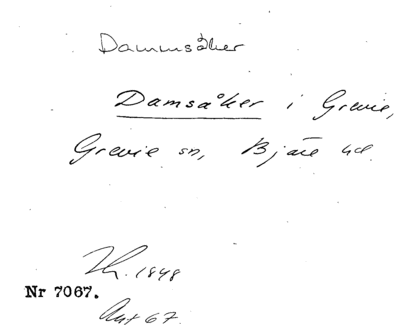 Dammsåker
Damsåker i Grevie,
Grevie sn, Bjäre hd.
1848
Nr 7067.
Ant 67.